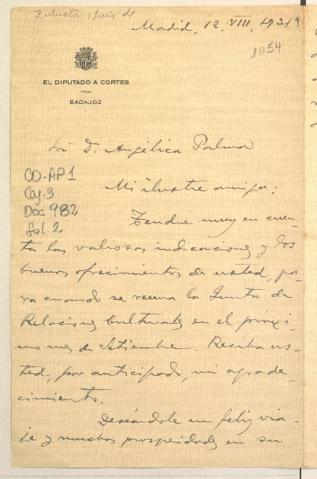 Zulueta, Luis de
Madrid, 12, VIII, 1931
1054
EL DIPUTADO A CORTES
BADAJOZ
D. Angélica Palma
CO-AP1
Caj. 3
Doc 982
fol. 2
Mi ilustre amiga:
Tendré muy en cuen-
ta las valiosas indicaciones y los
buenos ofrecimientos de usted, pa-
ra cuando se reuna la Junta de
Relaciones Culturales en el próxi-
mo mes de Stiembre. Reciba us-
ted, por anticipado, mi agrade-
cimiento.
Deseándole un feliz via-
je y muchas prosperidades en su